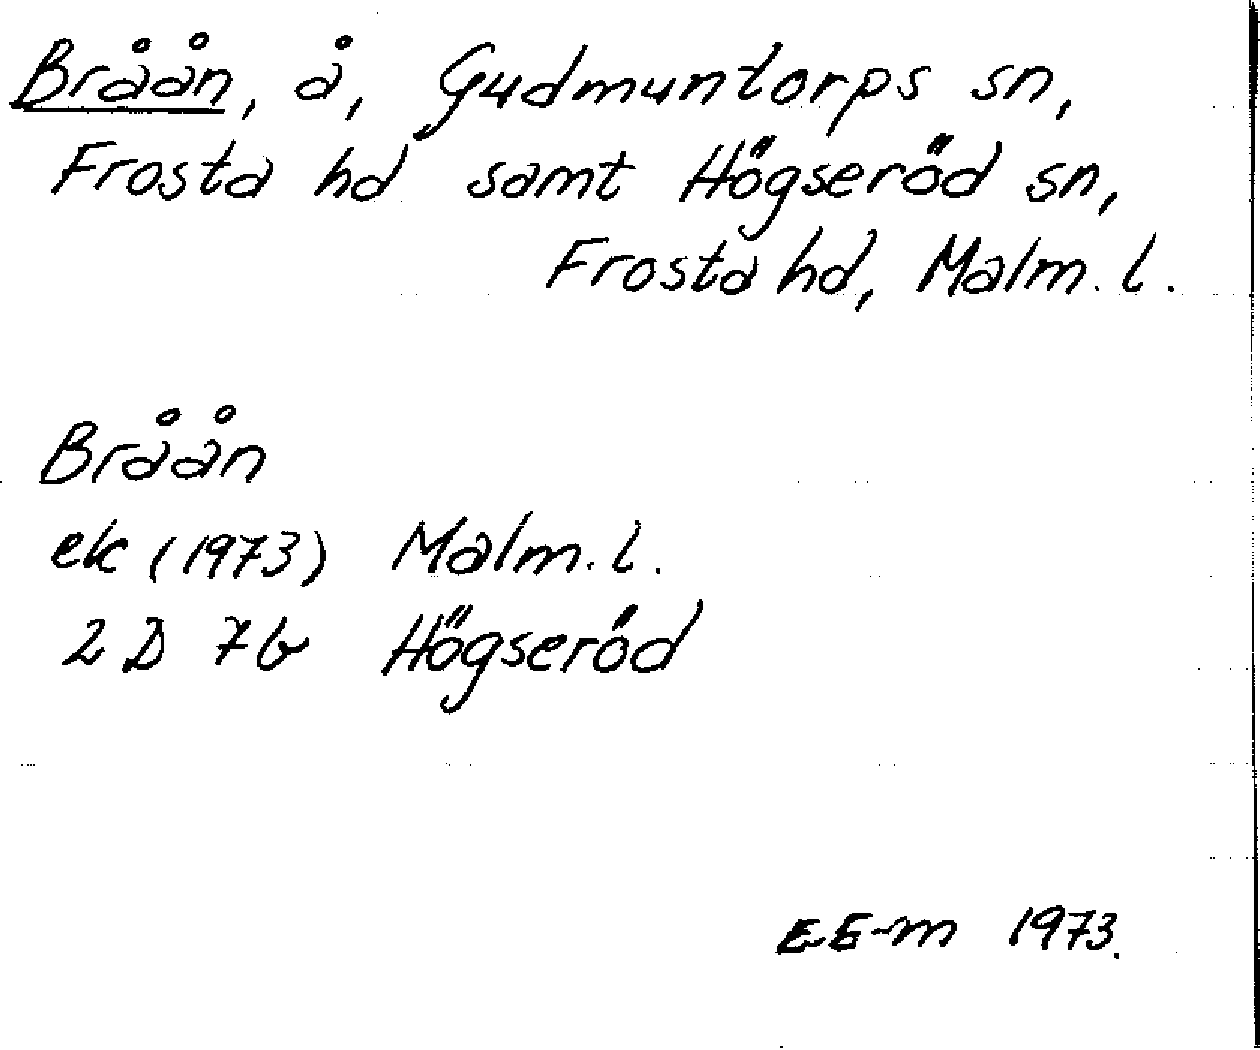 Bråån, å, Gudmuntorps sn,
Frosta hd samt Högseröd sn,
Frosta hd, Malm. l.
Bråån
ek (1973) Malm. l.
2 D 7b Högseröd
EE-m 1973.